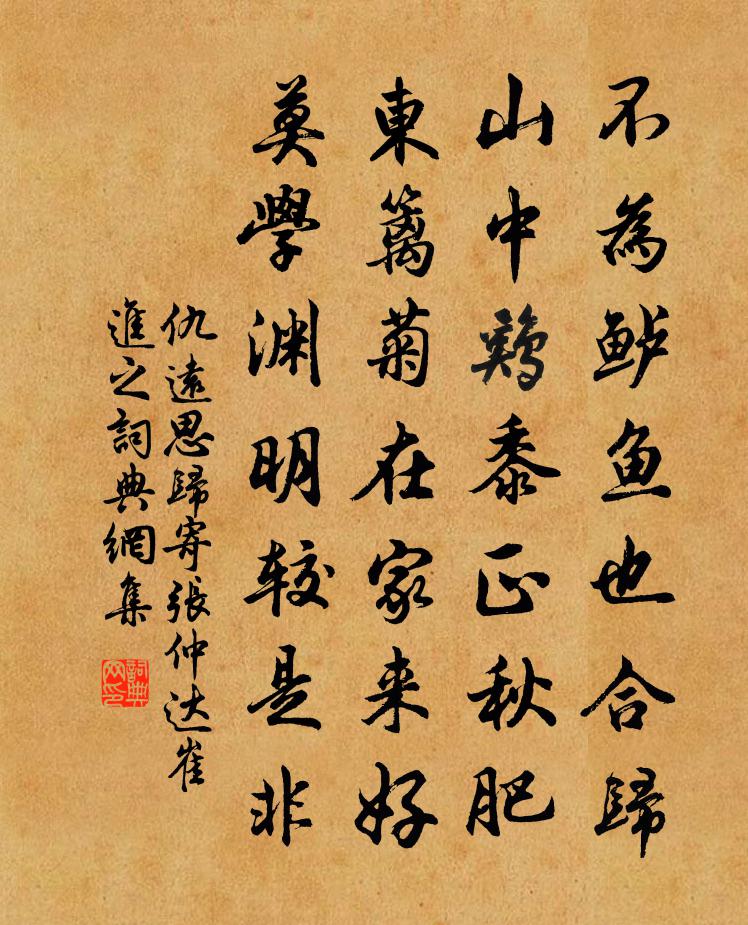 不為鲈鱼也合歸
山中鷄黍正秋肥
東篱菊在家来好
莫學渊明较是非
仇遠思歸寄張仲达崔
進之詞典網集
詞典
网印